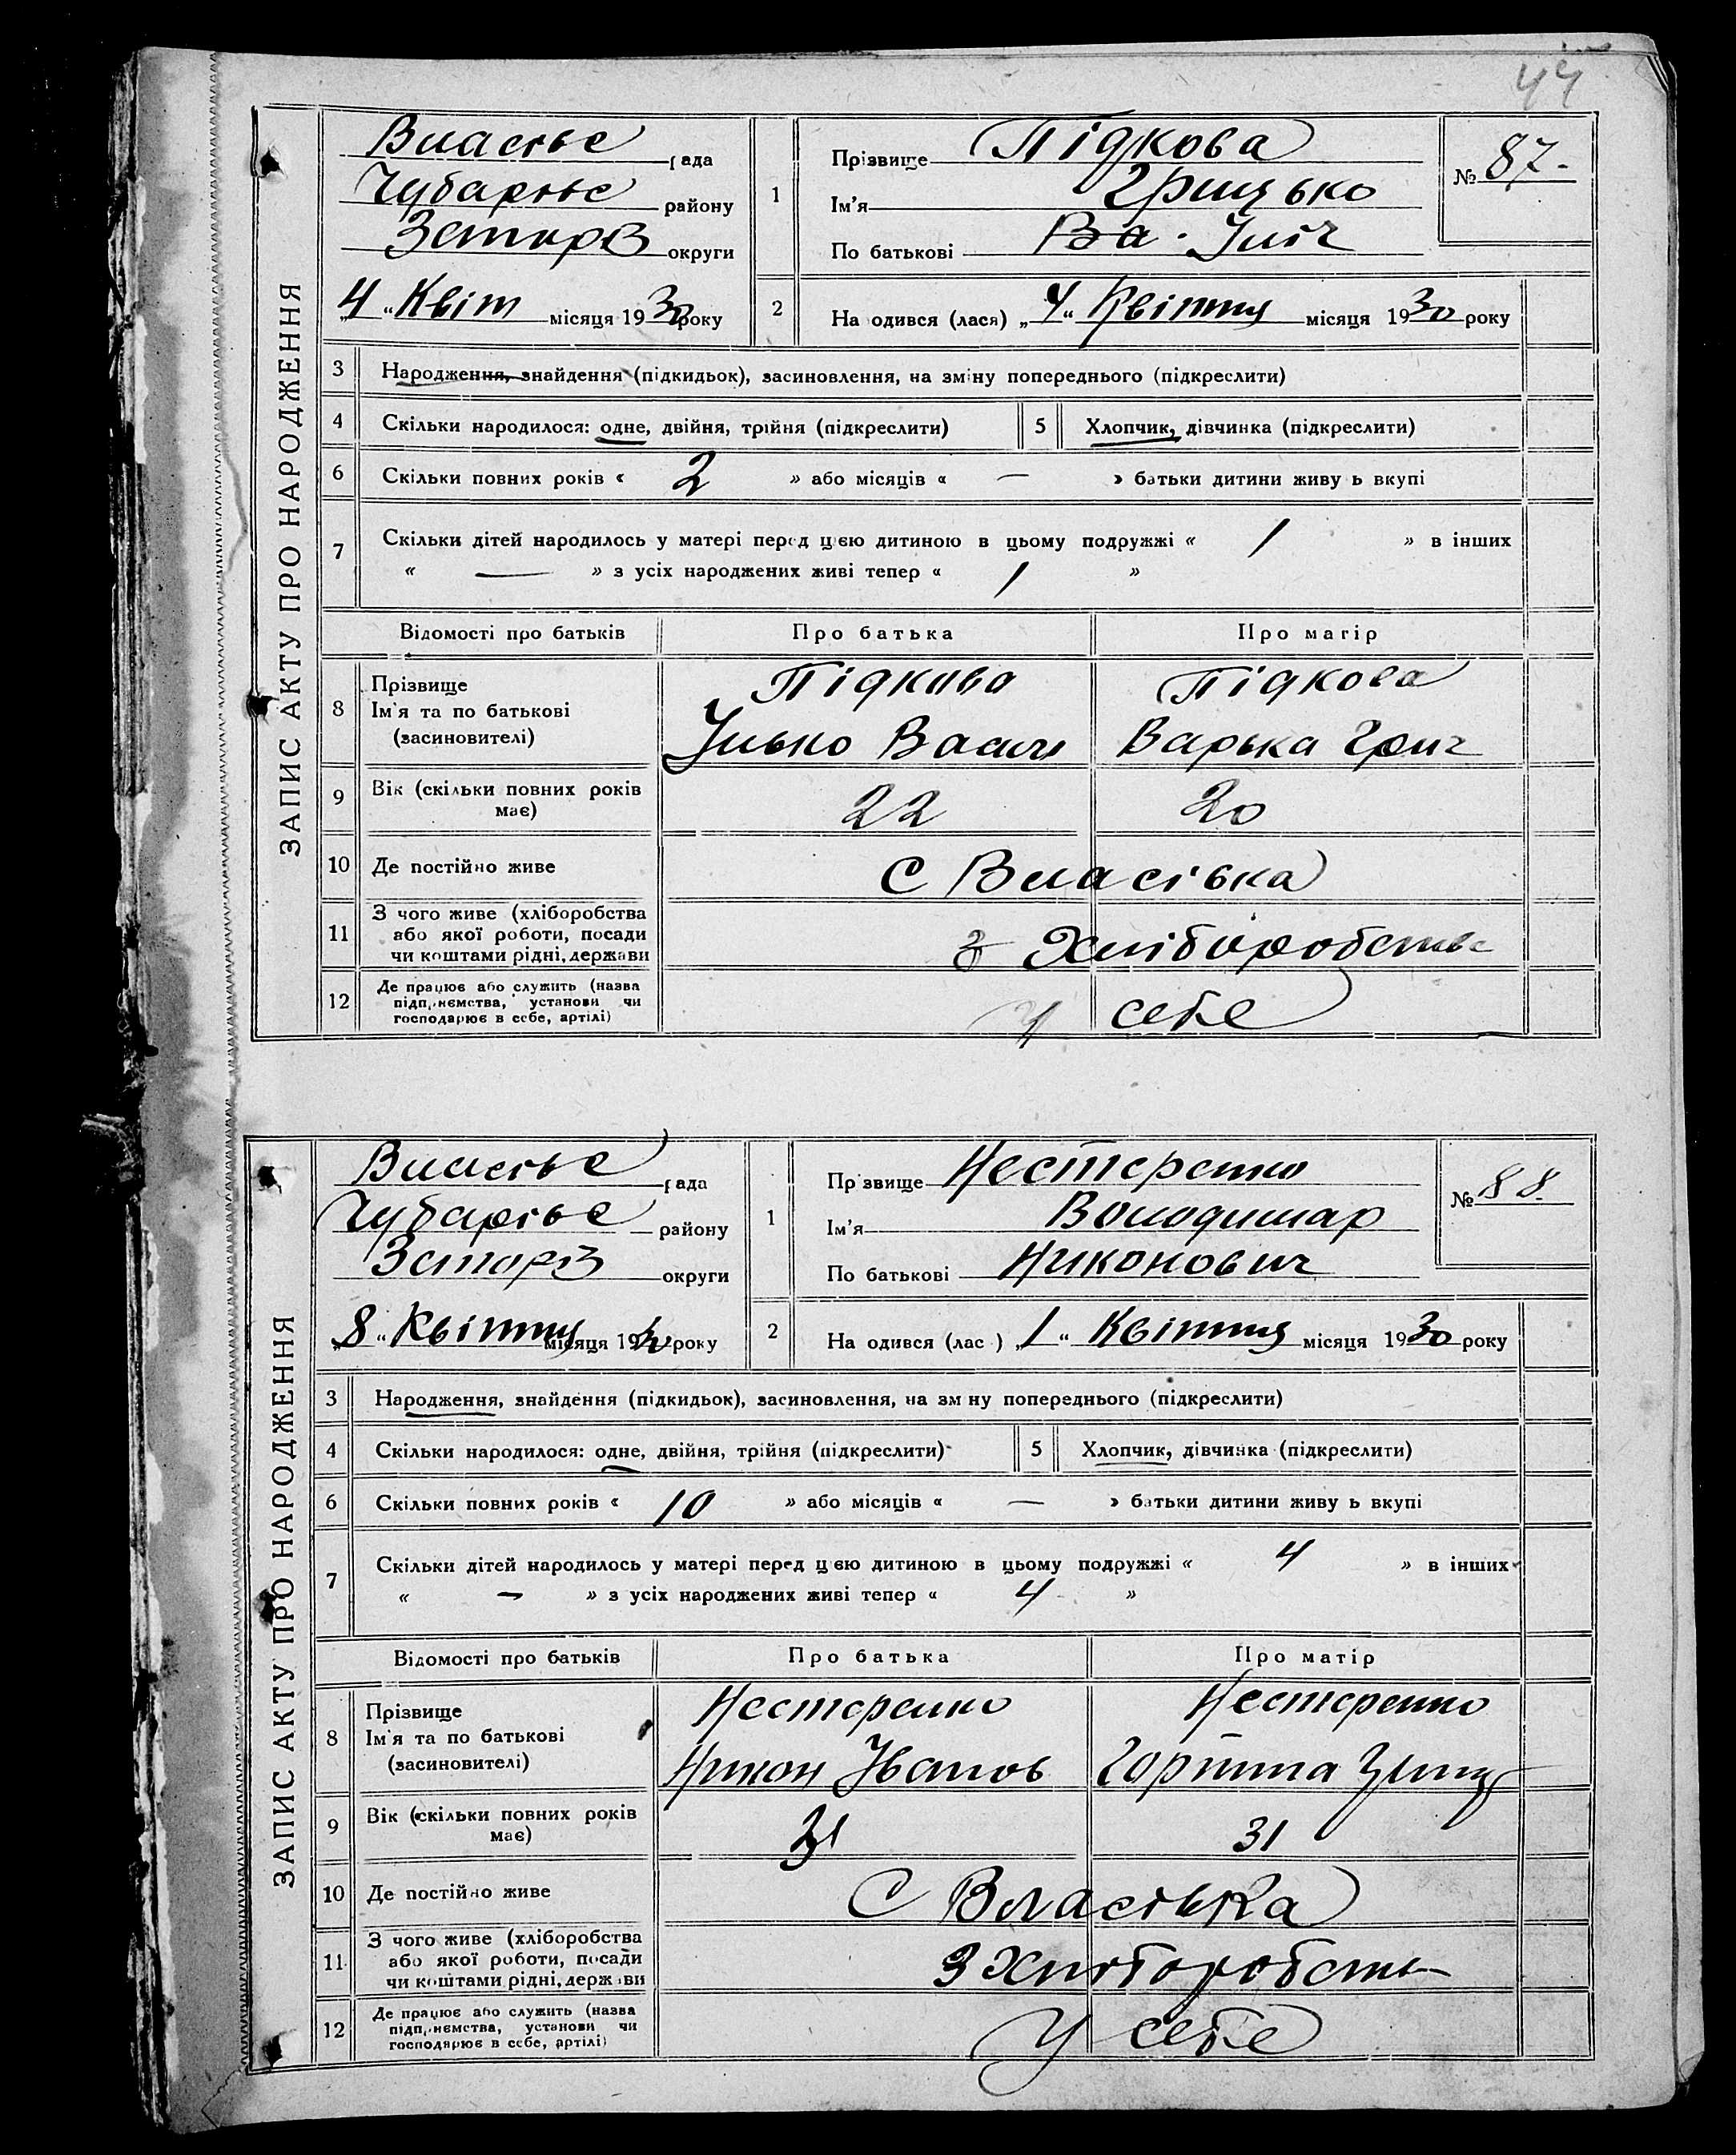 44
ЗАПИС АКТУ ПРО НАРОДЖЕННЯ
Власівс рада
Чубарівс району
Запоріз округи
„4“ Квіт місяця 1930 року
1
Прізвище Підкова
Ім'я Грицько
По батькові Ва. Ілліч
№ 87-
2 На одився (лася) „4“ Квітня місяця 1930 року
3 Народження, знайдення (підкидьок), засиновлення, на зміну попереднього (підкреслити)
4 Скільки народилося: одне, двійня, трійня (підкреслити) 5 Хлопчик, дівчинка (підкреслити)
6 Скільки повних років « 2 » або місяців « — » батьки дитини живу ь вкупі
7 Скільки дітей народилось у матері перед цією дитиною в цьому подружжі « 1 » в інших
« — » з усіх народжених живі тепер « 1 »
Відомості про батьків Про батька Про матір
8 Прізвище Підкова Підкова
Ім'я та по батькові
(засиновителі) Ілько Васил Варька Григ
9 Вік (скільки повних років
має) 22 20
10 Де постійно живе С Власівка
11 З чого живе (хліборобства
або якої роботи, посади
чи коштами рідні, держави з Хліборобства
12 Де працює або служить (назва
підприємства, установи чи
господарює в себе, артілі) У себе
ЗАПИС АКТУ ПРО НАРОДЖЕННЯ
Власівс рада
Чубарівс району
Запоріз округи
„8“ Квітня місяця 1930 року
1
Пр звище Нестеренко
Ім'я Володимар
По батькові Никонович
№ 88.
2 На одився (лас ) „1“ Квітня місяця 1930 року
3 Народження, знайдення (підкидьок), засиновлення, на зм ну попереднього (підкреслити)
4 Скільки народилося: одне, двійня, трійня (підкреслити) 5 Хлопчик, дівчинка (підкреслити)
6 Скільки повних років « 10 » або місяців « — » батьки дитини живу ь вкупі
7 Скільки дітей народилось у матері перед цією дитиною в цьому подружжі « 4 » в інших
« — » з усіх народжених живі тепер « 4 »
Відомості про батьків Про батька Про матір
8 Прізвище Нестеренко Нестеренко
Ім'я та по батькові
(засиновителі) Никон Іванов Горпина
9 Вік (скільки повних років
має) 31 31
10 Де постійно живе С Власівка
11 З чого живе (хліборобства
або якої роботи, посади
чи коштами рідні, держави З Хліборобств
12 Де працює або служить (назва
підприємства, установи чи
господарює в себе, артілі) У себе